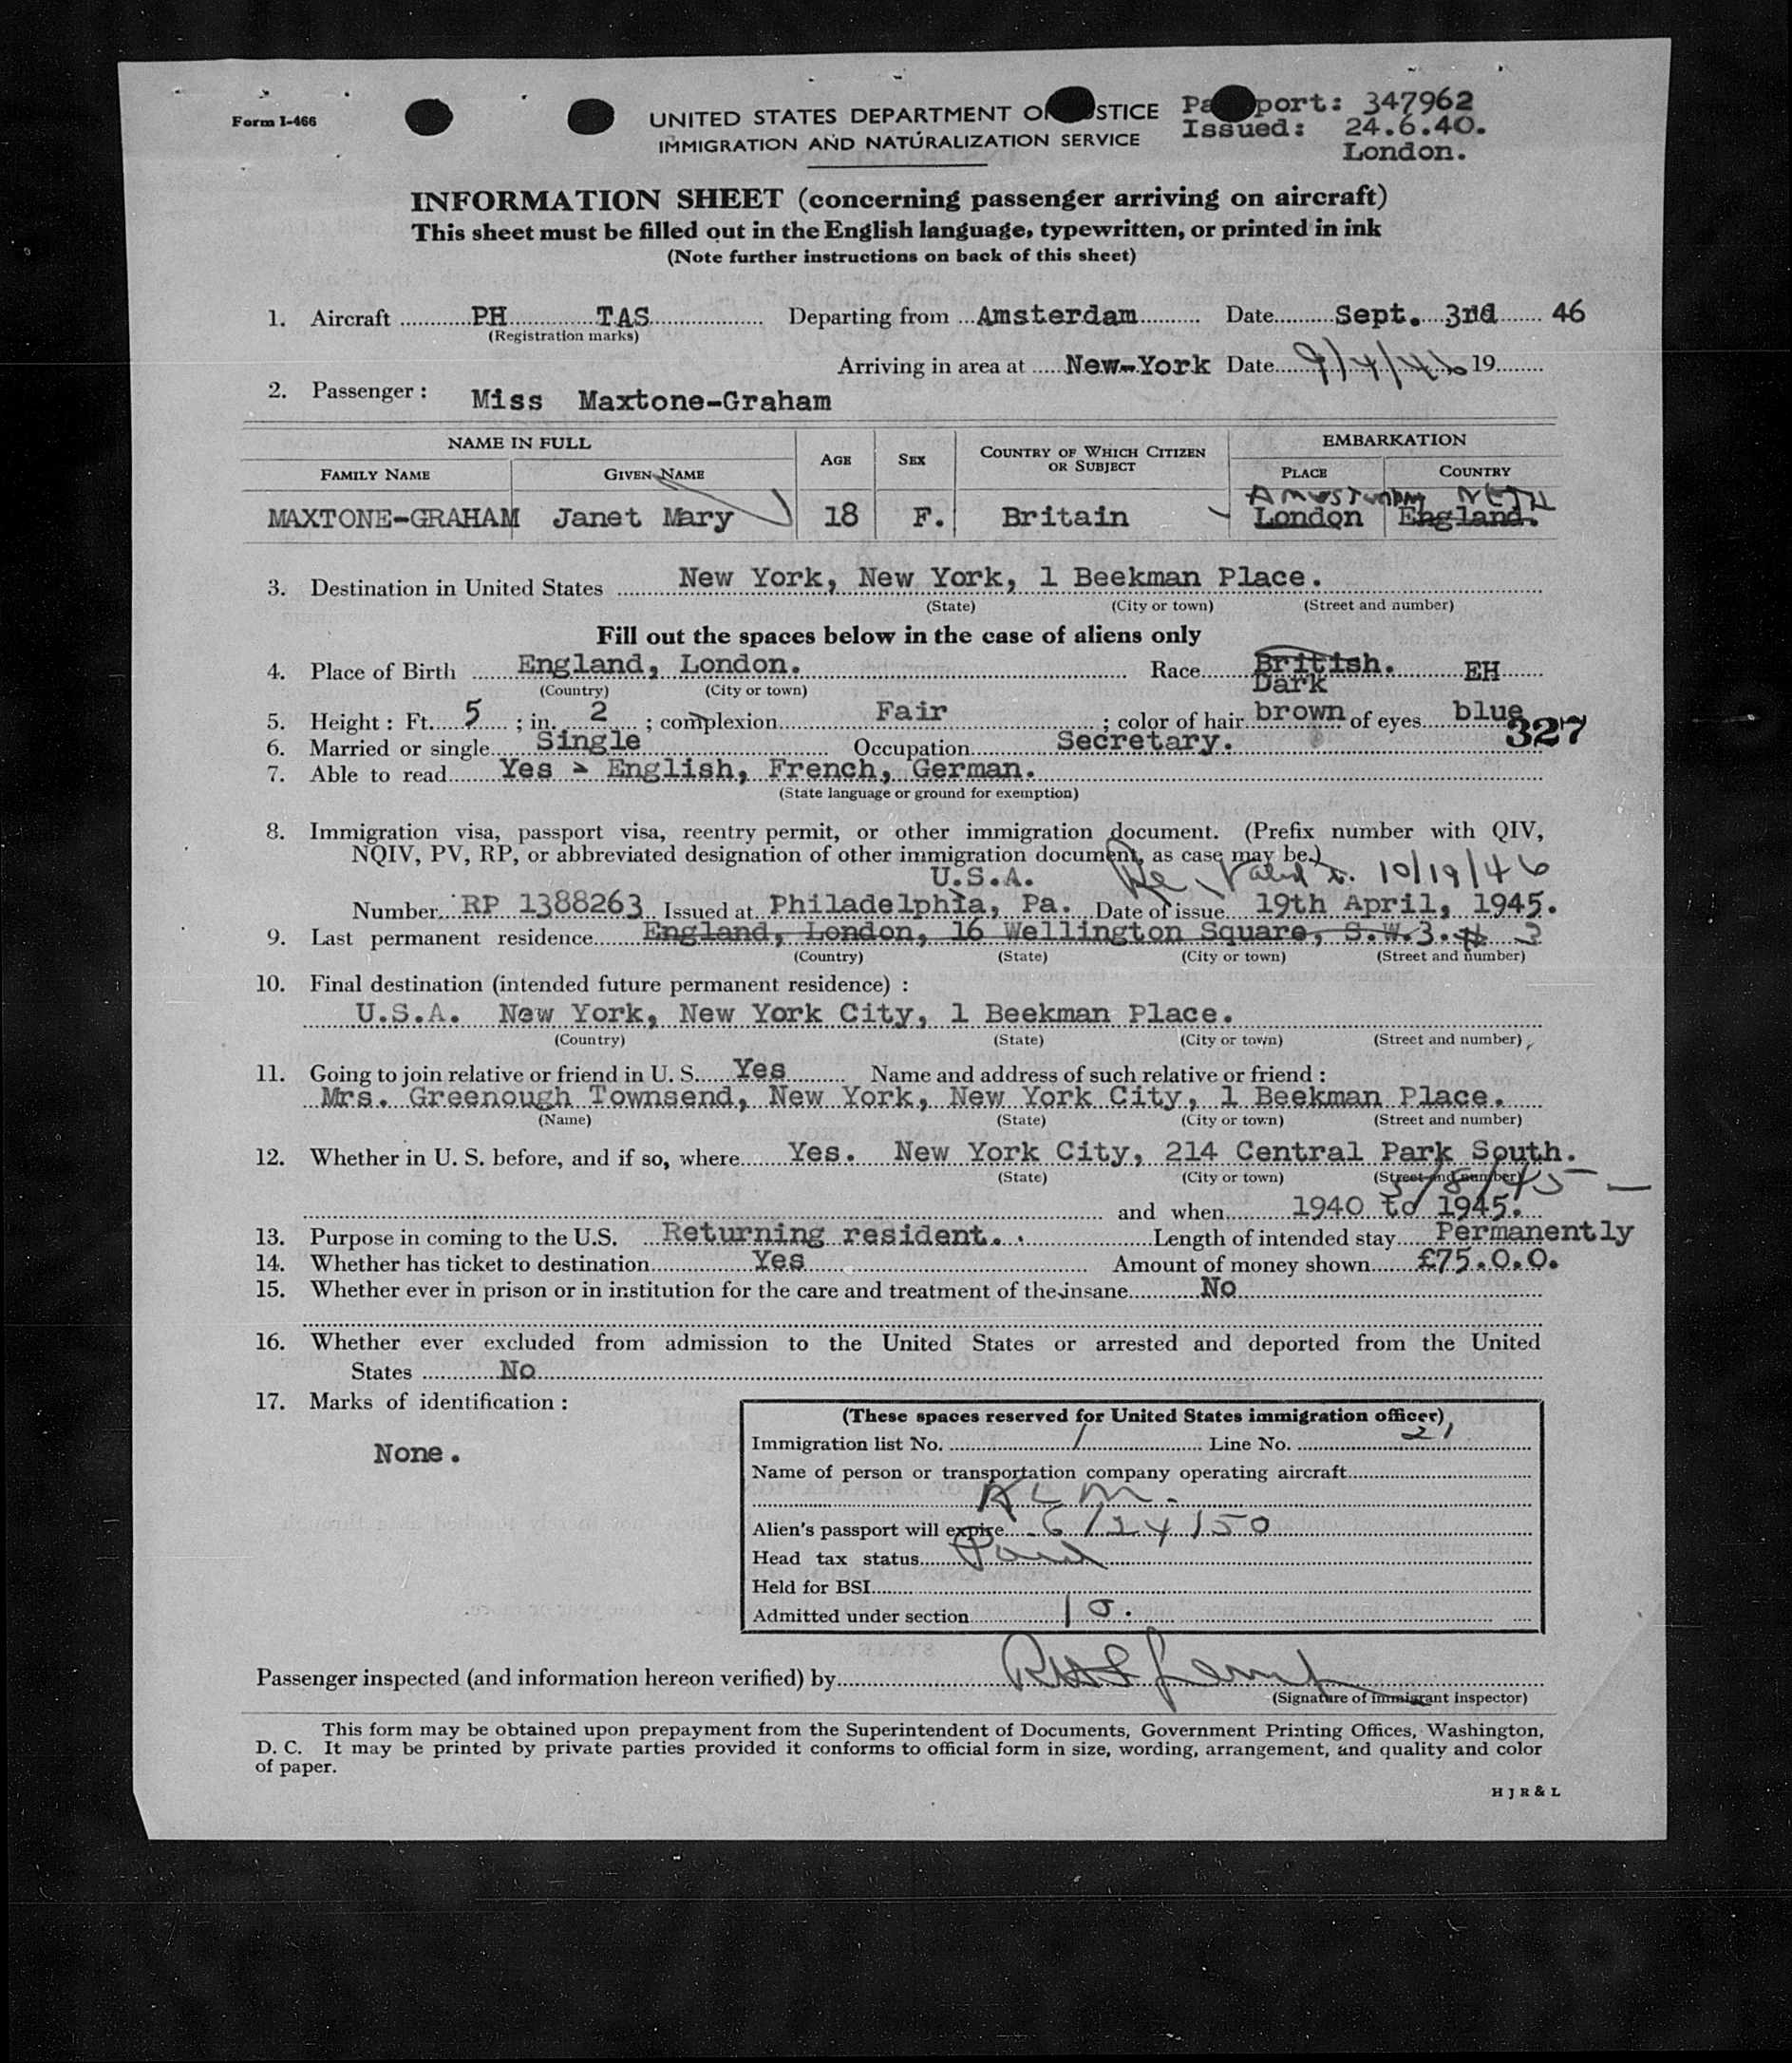 Form I-466
UNITED STATES DEPARTMENT O STICE
IMMIGRATION AND NATURALIZATION SERVICE
Pa port: 347962
Issued: 24.6.40.
London.
INFORMATION SHEET (concerning passenger arriving on aircraft)
This sheet must be filled out in the English language, typewritten, or printed in ink
(Note further instructions on back of this sheet)
1. Aircraft PH TAS Departing from Amsterdam Date Sept. 3rd 46
(Registration marks)
Arriving in area at New York Date 9/4/46 19
2. Passenger : Miss Maxtone-Graham
NAME IN FULL AGE SEX COUNTRY OF WHICH CITIZEN OR SUBJECT EMBARKATION
FAMILY NAME GIVEN NAME PLACE COUNTRY
Amsterdam NETH
MAXTONE-GRAHAM Janet Mary 18 F. Britain London England.
3. Destination in United States New York, New York, 1 Beekman Place.
(State) (City or town) (Street and number)
Fill out the spaces below in the case of aliens only
4. Place of Birth England, London. Race British. EH
(Country) (City or town)
5. Height : Ft. 5 ; in. 2 ; complexion Fair ; color of hair Dark brown of eyes blue
327
6. Married or single Single Occupation Secretary.
7. Able to read Yes - English, French, German.
(State language or ground for exemption)
8. Immigration visa, passport visa, reentry permit, or other immigration document. (Prefix number with QIV,
NQIV, PV, RP, or abbreviated designation of other immigration document, as case may be.)
U.S.A. 10/19/46
Number RP 1388263 Issued at Philadelphia, Pa. Date of issue 19th April, 1945.
9. Last permanent residence England, London, 16 Wellington Square, S.W.3. # 3
(Country) (State) (City or town) (Street and number)
10. Final destination (intended future permanent residence) :
U.S.A. New York, New York City, 1 Beekman Place.
(Country) (State) (City or town) (Street and number)
11. Going to join relative or friend in U. S. Yes Name and address of such relative or friend :
Mrs. Greenough Townsend, New York, New York City, 1 Beekman Place.
(Name) (State) (City or town) (Street and number)
12. Whether in U. S. before, and if so, where Yes. New York City, 214 Central Park South.
(State) (City or town) (Street and number)
5/8/45 —
and when 1940 to 1945.
13. Purpose in coming to the U.S. Returning resident. Length of intended stay Permanently
14. Whether has ticket to destination Yes Amount of money shown £75.0.0.
15. Whether ever in prison or in institution for the care and treatment of the insane No
16. Whether ever excluded from admission to the United States or arrested and deported from the United
States No
17. Marks of identification :
None.
(These spaces reserved for United States immigration officer)
Immigration list No. 1 Line No. 21
Name of person or transportation company operating aircraft
KLM.
Alien's passport will expire 6/24/50
Head tax status Paid
Held for BSI
Admitted under section 10.
Passenger inspected (and information hereon verified) by
(Signature of immigrant inspector)
This form may be obtained upon prepayment from the Superintendent of Documents, Government Printing Offices, Washington,
D. C. It may be printed by private parties provided it conforms to official form in size, wording, arrangement, and quality and color
of paper.
H J R & L